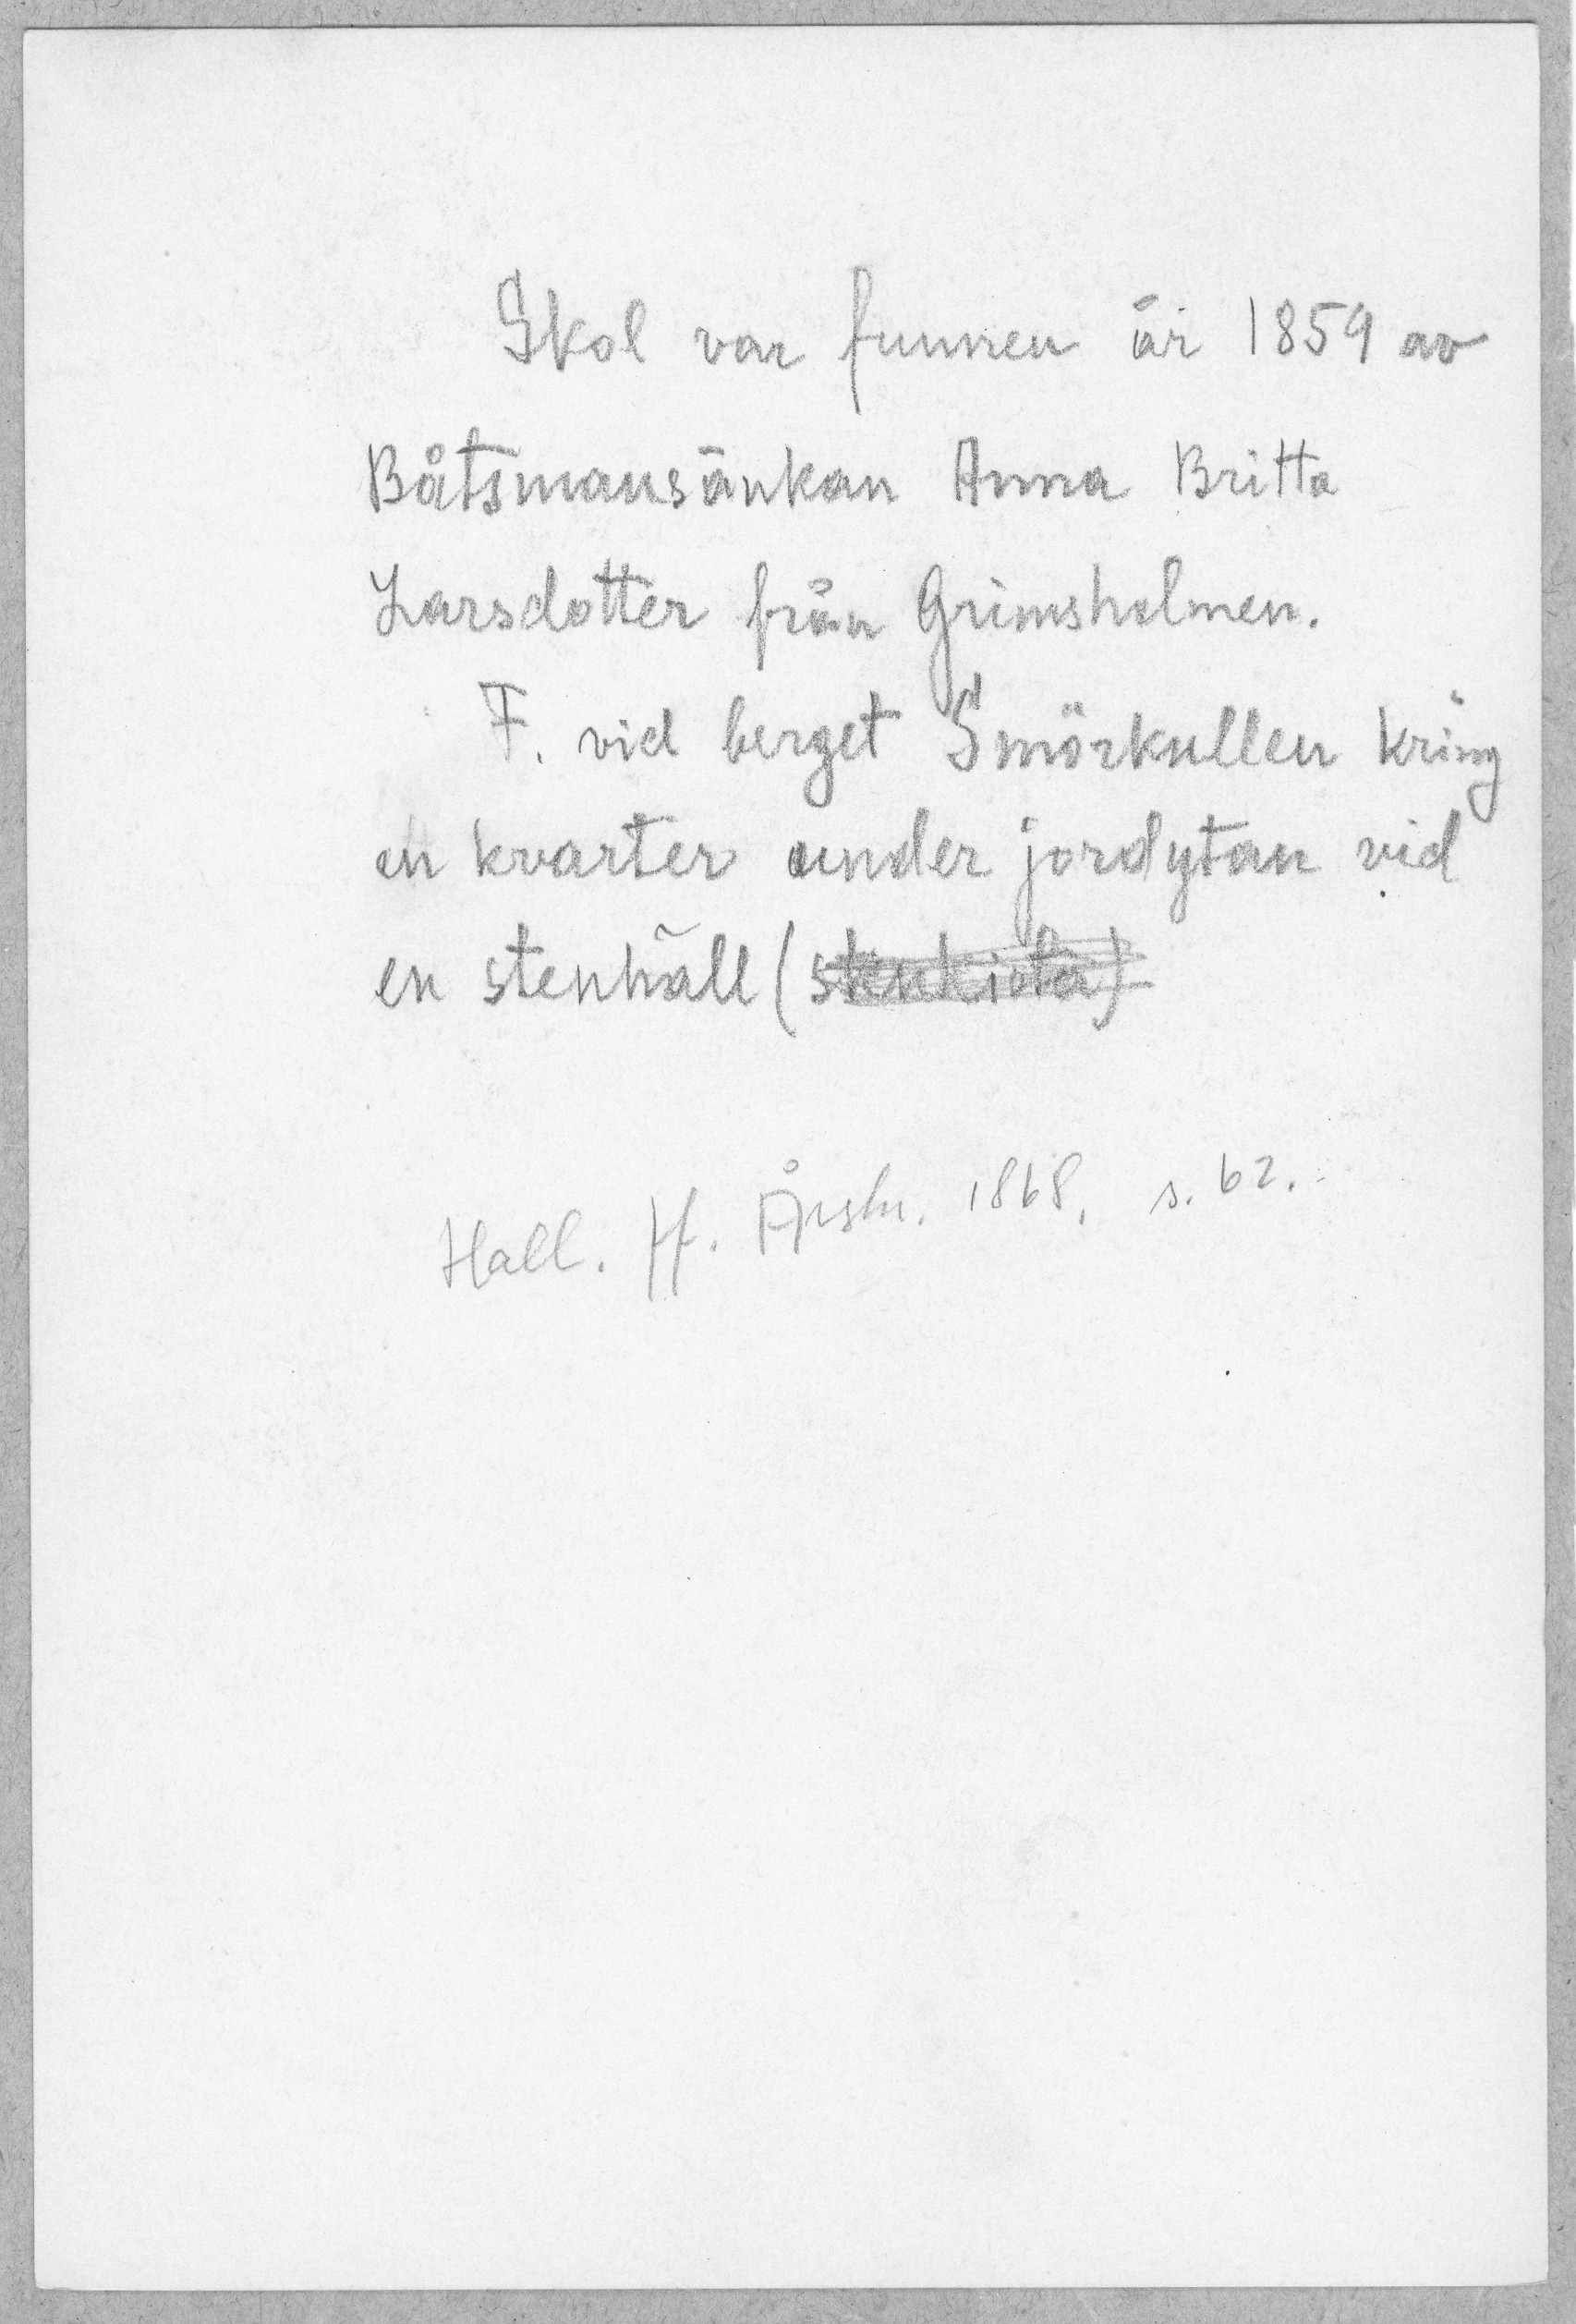 Skol var funnen år 1859 av
Båtsmansänkan Anna Britta
Larsdotter från Grimsholmen.
F. vid berget Smörkullen kring
en kvarter under jordytan vid
en stenhäll (stenkista)
Hall. H. Årsskr. 1868. s. 62.